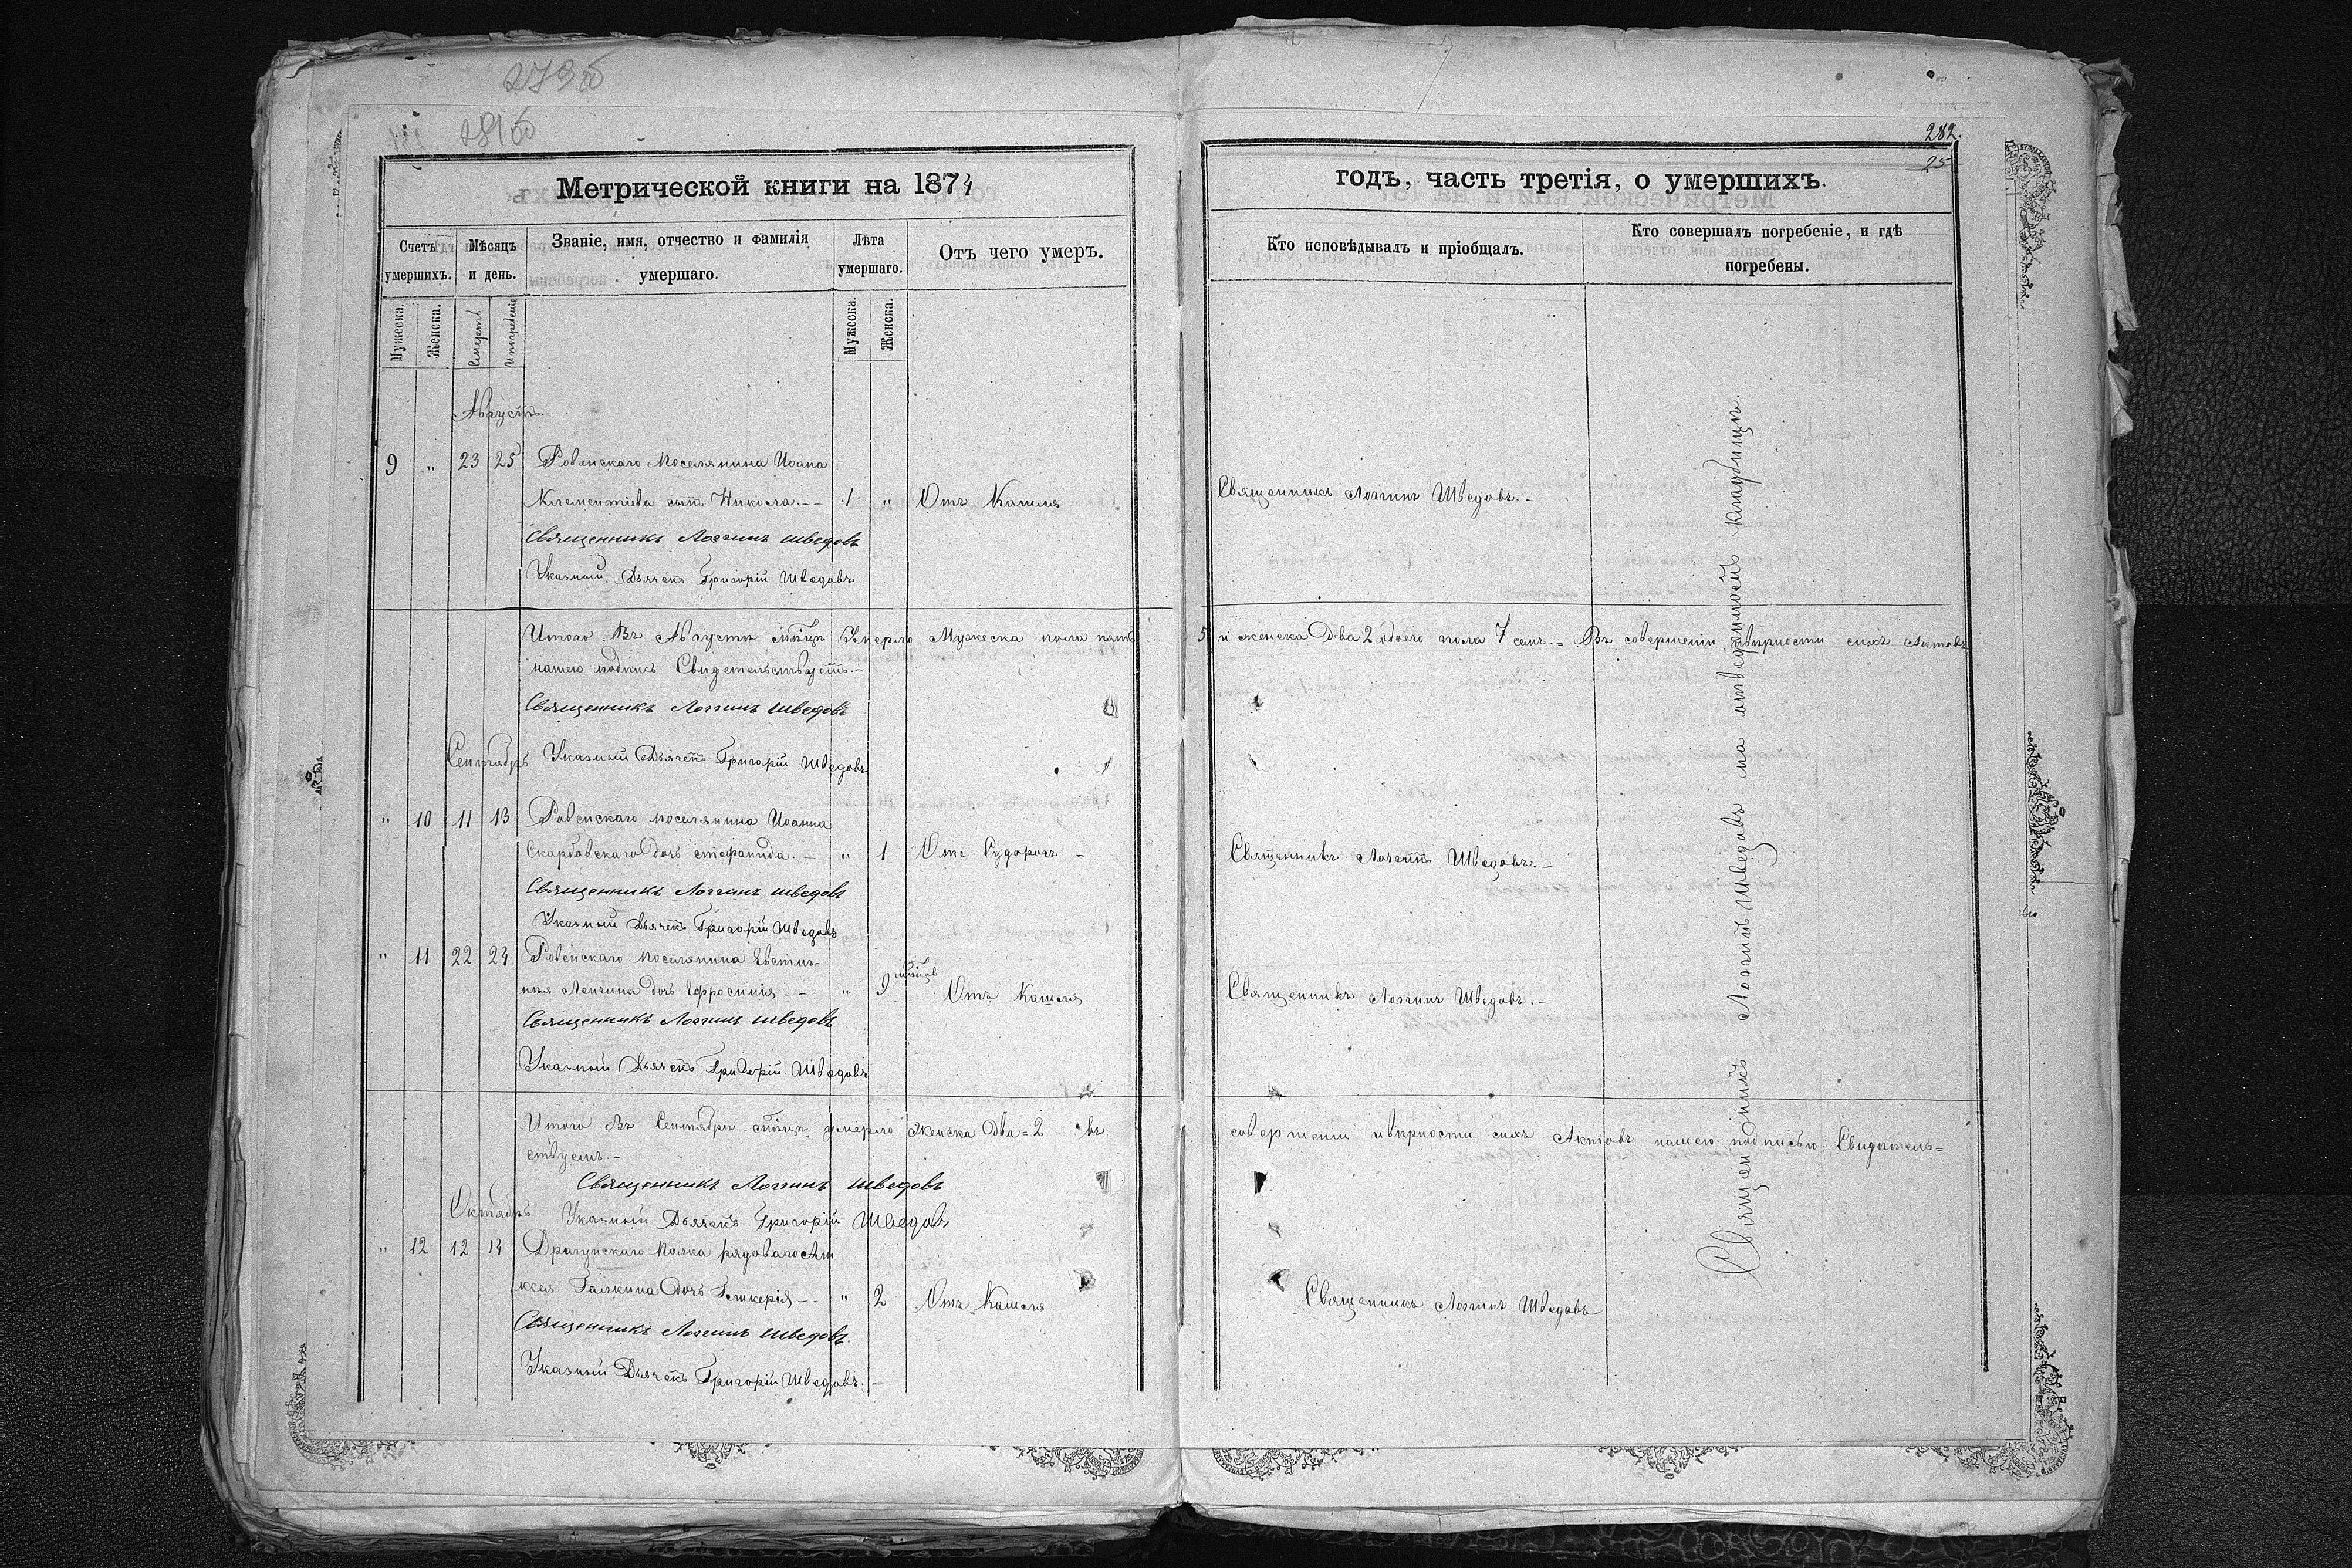 279 об
281 об
282.
25
Метрической книги на 1874
годъ, часть третія, о умершихъ.
Счетъ умершихъ.
Мѣсяцъ и день.
Званіе, имя, отчество и фамилія умершаго.
Лѣта умершаго.
Отъ чего умеръ.
Кто исповѣдывалъ и пріобщалъ.
Кто совершалъ погребеніе, и гдѣ погребены.
Мужеска.
Женска.
Смерти
Погребенія
Мужеска.
Женска.
Августъ.
9 " 23 25 Ровенскаго Поселянина Иоана
Климентіева сынъ Никола. 1 " Отъ Кашля Священникъ Логгинъ Шведовъ.
Священникъ Логгинъ Шведовъ
Указный Дьячекъ Григорій Шведовъ
Итого Въ Августѣ мѣсцѣ Умерло Мужеска пола пять 5 и женска Два 2 обоего пола 7 семь. = Въ совершеніи и вѣрности сихъ Актовъ
нашею подпись Свидетельствуетъ.
Священникъ Логгинъ Шведовъ
Сентябрь
Указный Дьячекъ Григорій Шведовъ
" 10 11 13 Ровенскаго поселянина Иоанна
Скарбовскаго дочь Стефанида. " 1 Отъ Судорогъ Священникъ Логгинъ Шведовъ.
Священникъ Логгинъ Шведовъ
Указный Дьячекъ Григорій Шведовъ
" 11 22 24 Ровенскаго Поселянина Евстиг-
нея дочь Ефросинія " 9 мѣсцов Отъ Кашля Священникъ Логгинъ Шведовъ.
Священникъ Логгинъ Шведовъ
Указный Дьячекъ Григорій Шведовъ
Итого Въ Сентябрѣ мѣсцѣ умерло Женска Два = 2 въ совершеніи и вѣрности сихъ Актовъ нашею подписью Свидѣтель=
ствуемъ.
Священникъ Логгинъ Шведовъ
Октябрь
Указный Дьячекъ Григорій Шведовъ
" 12 12 14 Драгунскаго Полка рядоваго Але
ксея Галкина дочь Гликерія " 2 Отъ Кашля Священникъ Логгинъ Шведовъ
Священникъ Логгинъ Шведовъ.
Указный Дьячекъ Григорій Шведовъ.
Священникъ Логгинъ Шведовъ на отведенномъ кладбищѣ.